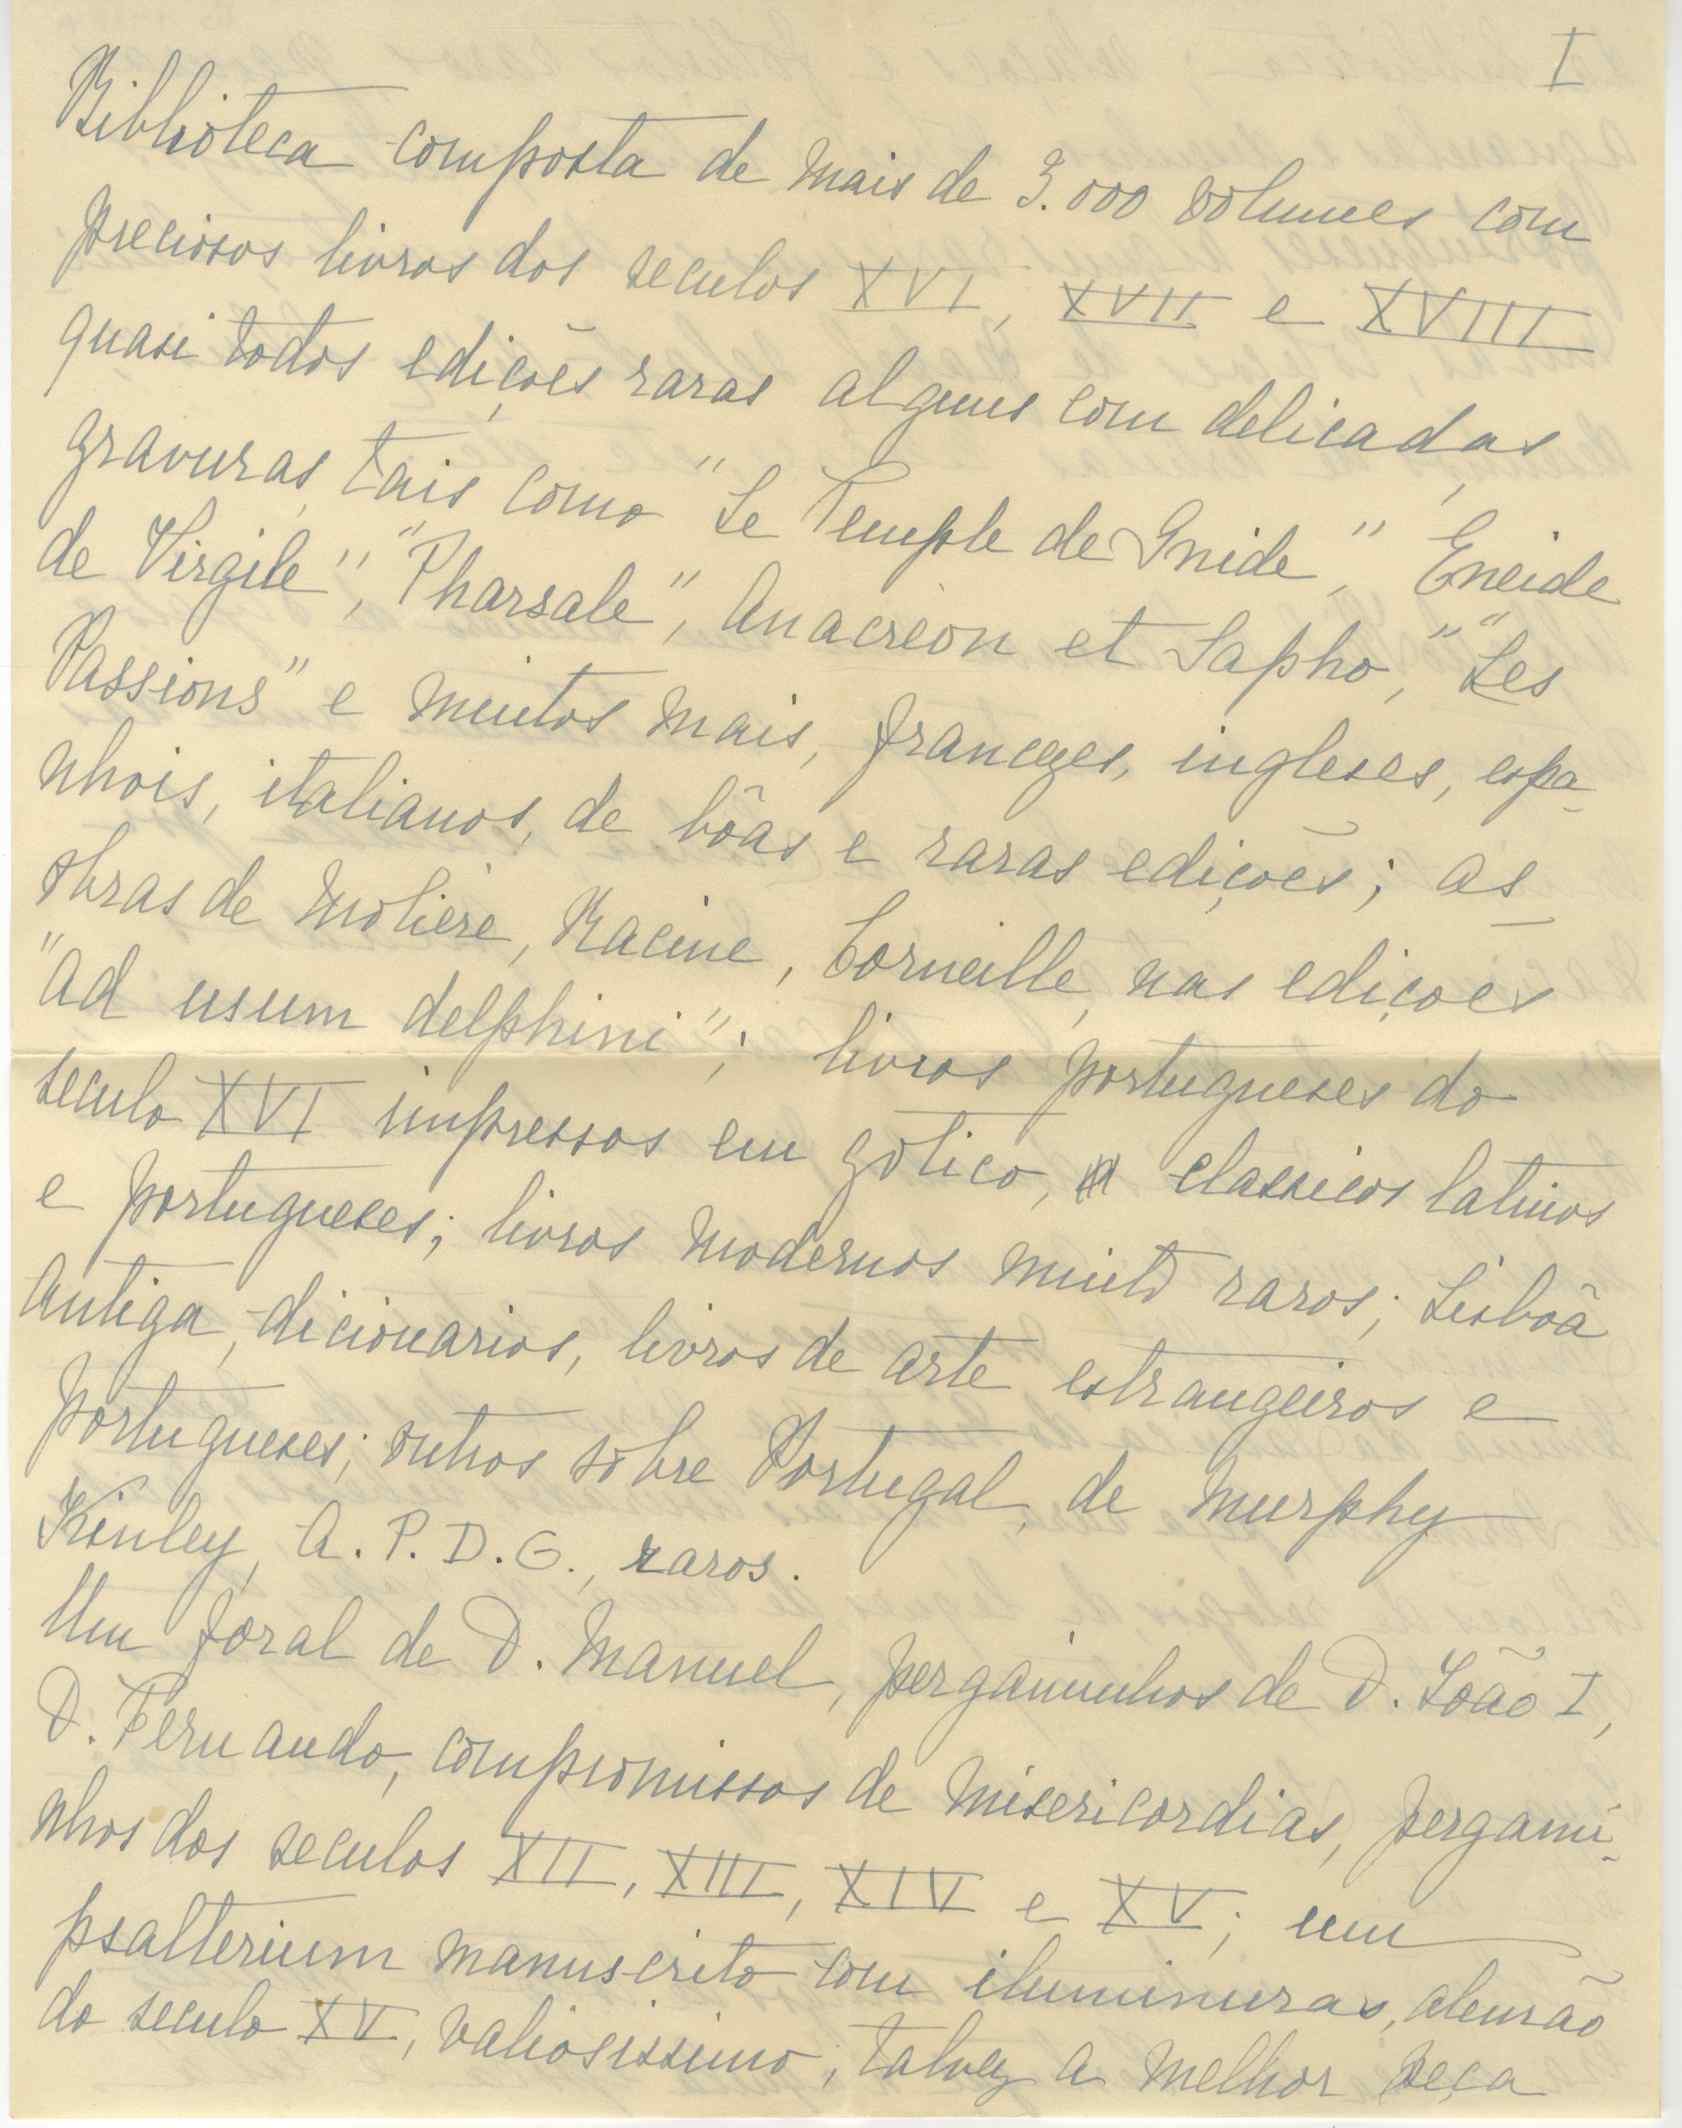 I
Biblioteca composta de mais de 3.000 volumes com
preciosos livros dos seculos XVI, XVII e XVIII
quasi todos edições raras alguns com delicadas
gravuras, tais como "Le Temple de Gnide", "Eneide
de Virgile", "Pharsale", Anacréon et Sapho", "Les
Passions" e muitos mais, francezes, ingleses, espa-
nhois, italianos, de bôas e raras edições; as
obras de Molière, Racine, Corneille, nas edições
"ad usum delphini"; livros portugueses do
seculo XVI impressos em gotico, classicos latinos
e portugueses; livros modernos muito raros; Lisbôa
Antiga, dicionarios, livros de arte estrangeiros e
portugueses; outros sobre Portugal, de Murphy
Kinley, A.P.D.G., raros.
Um foral de D. Manuel, pergaminhos de D. João I,
D. Fernando, compromissos de Misericordias, pergami-
nhos dos seculos XII, XIII, XIV e XV; um
psalterium manuscrito com iluminuras, alemão
do seculo XV, valiosissimo, talvez a melhor peça